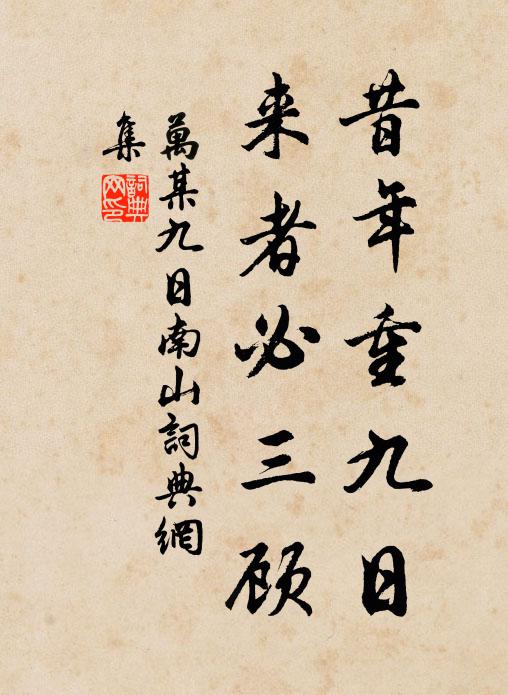 昔年重九日
来者必三顾
萬某九日南山詞典網
集
詞典網印